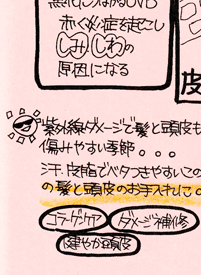 黒化につながるUVD
赤く炎症を起こし
しみ しわの
原因になる
皮
紫外線ダメージで髪と頭皮も
傷みやすい季節。。。
汗、皮脂でベタつきやすいこの
の髪と頭皮のお手入れに○
コラーゲンケア ダメージ補修
健やか頭皮